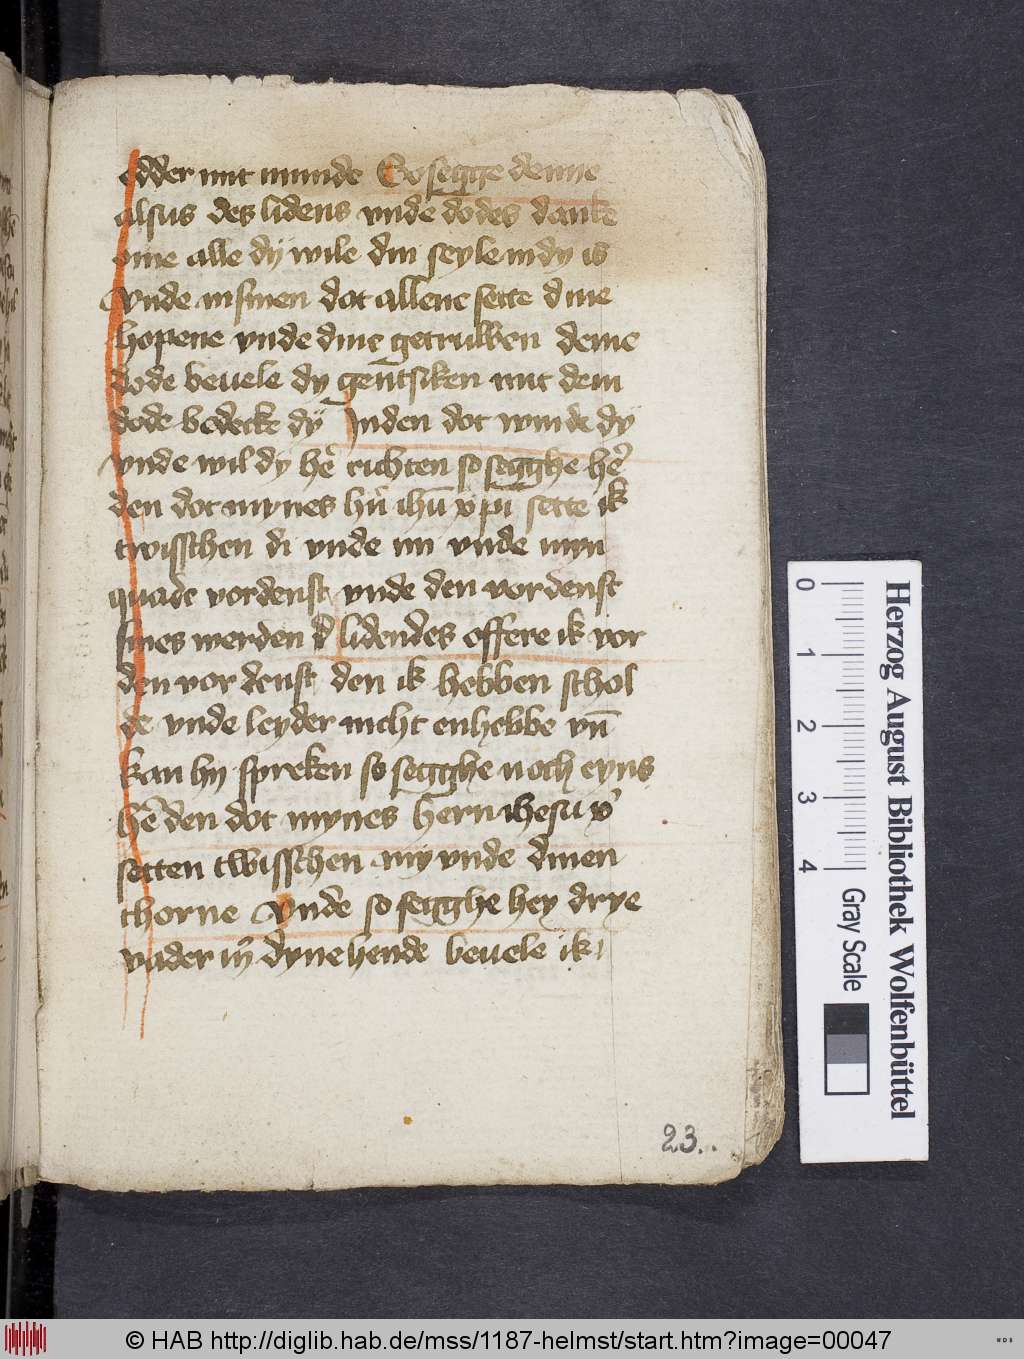 edder mit munde So segge denne
alsus des lidens vnde dodes danke
eme alle dÿ wile din seyle in dy is
Vnde in sinen dot allene sette dine
hopene vnde dine getruwen deme
dode beuele dy gentsiken mit dem
dode bedecke dÿ In den dot winde dy
vnde wil dy he richten so segghe he
den dot mynes hn̄ ihū xpi sette ik
twisschen di vnde mi vnde myn
quade vordenst vnde den vordenst
sines werden lidendes offere ik vor
den vordenst den ik hebben schol
de vnde leyder nicht enhebbe vn̄
kan hy spreken so segghe noch eyns
hē den dot mynes hern ihesu x
setten twisschen my vnde dinen
thorne Vnde so segghe hey drye
vader in dyne hende beuele ik
23.
0 1 2 3 4
Gray Scale
Herzog August Bibliothek Wolfenbüttel
© HAB http://diglib.hab.de/mss/1187-helmst/start.htm?image=00047